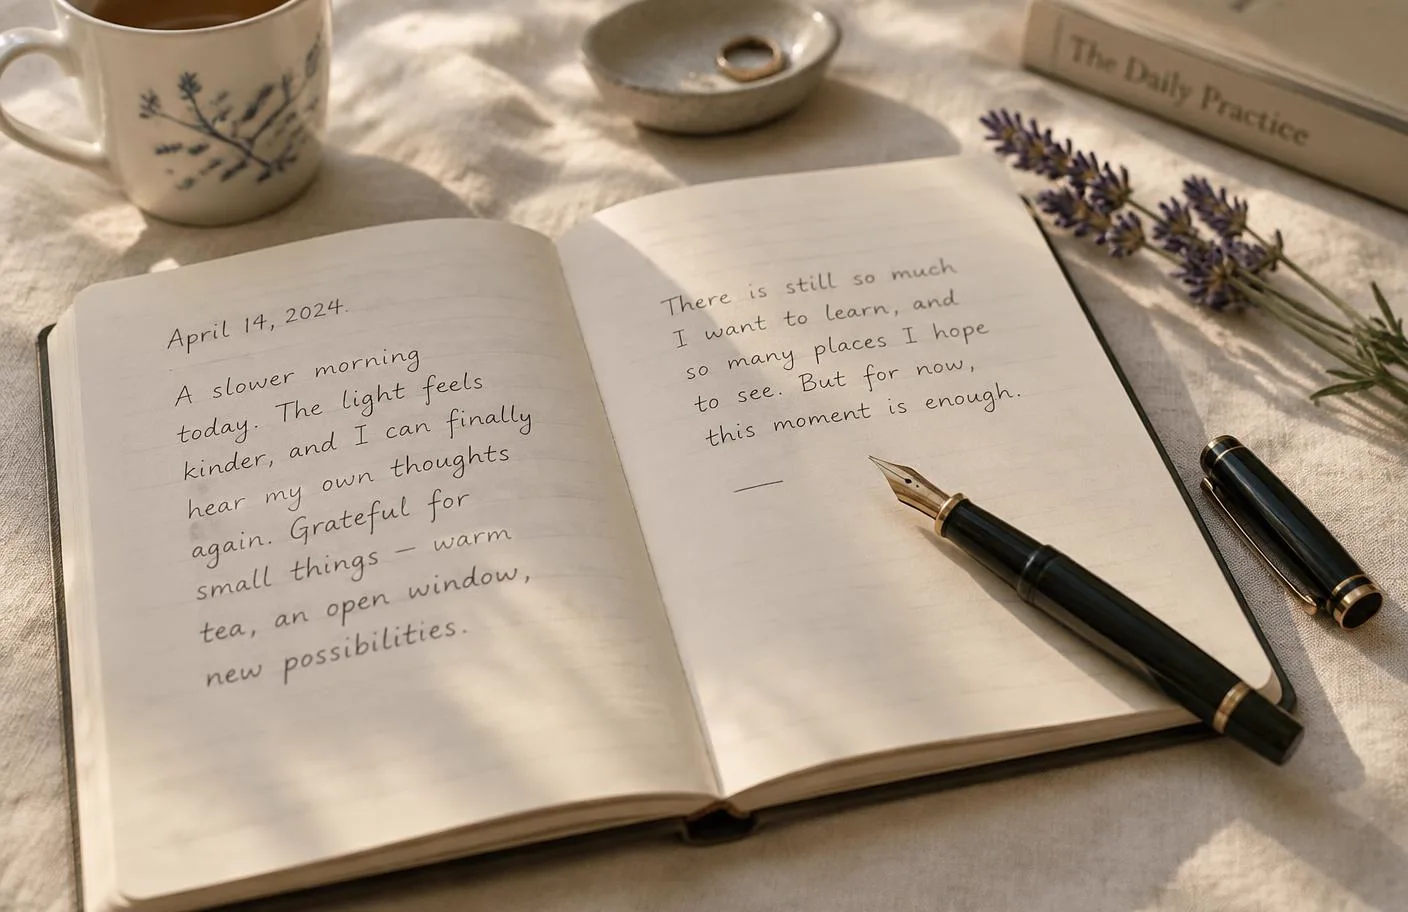 The Daily Practice
April 14, 2024.
A slower morning
today. The light feels
kinder, and I can finally
hear my own thoughts
again. Grateful for
small things — warm
tea, an open window,
new possibilities.
There is still so much
I want to learn, and
so many places I hope
to see. But for now,
this moment is enough.
—